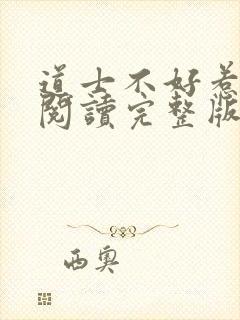 道士不好惹
閱讀完整版
西奧